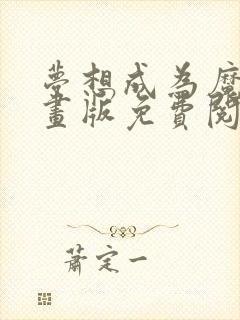 夢想成為
畫版免費閱
蕭定一